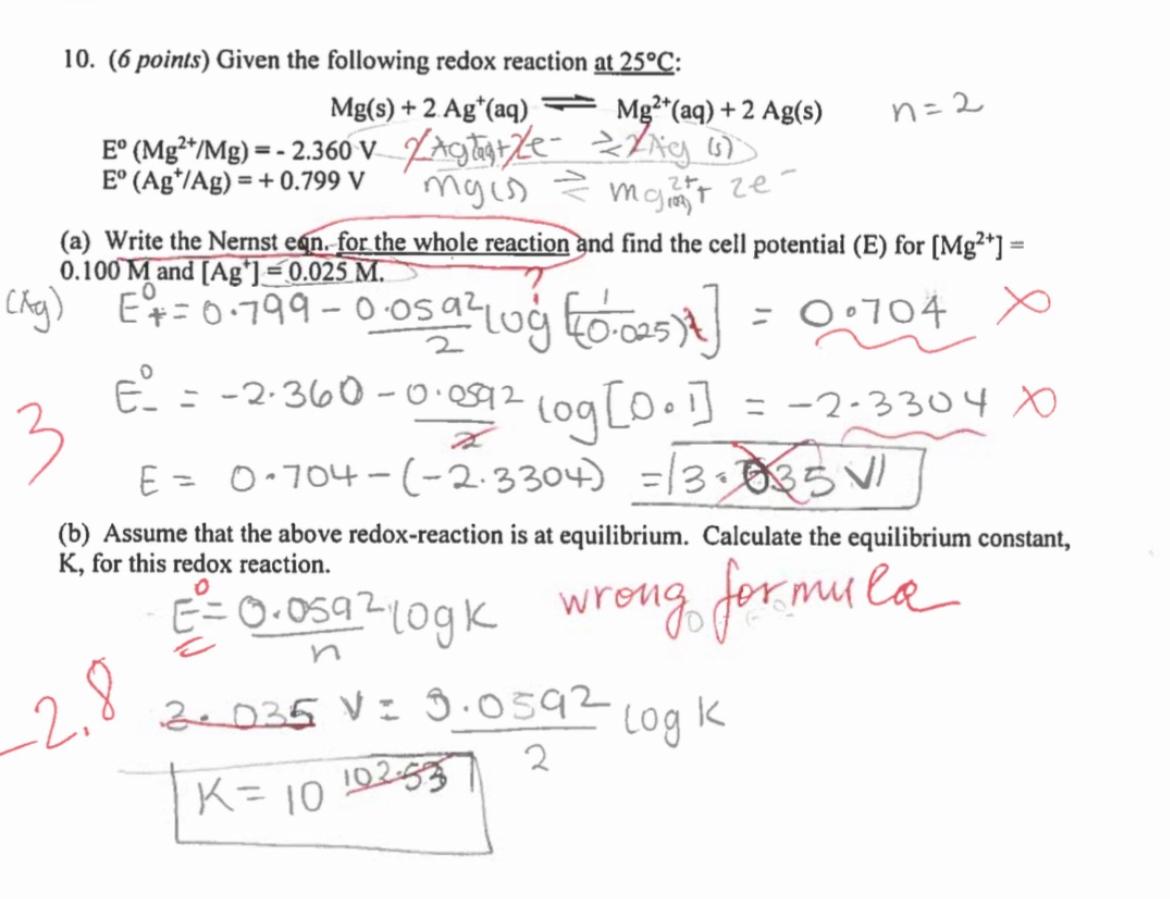 10. (6 points) Given the following redox reaction at 25°C:
Mg(s) + 2 Ag⁺(aq) ⇌ Mg²⁺(aq) + 2 Ag(s) n = 2
E° (Mg²⁺/Mg) = - 2.360 V 2Ag⁺(aq) + 2e⁻ ⇌ 2Ag (s)
E° (Ag⁺/Ag) = + 0.799 V mg(s) ⇌ mg²⁺(aq) + 2e⁻
(a) Write the Nernst eqn. for the whole reaction and find the cell potential (E) for [Mg²⁺] =
0.100 M and [Ag⁺] = 0.025 M.
?
(Ag) E°₊ = 0.799 - 0.0592/2 log [1/(0.025)²] = 0.704 X
E°₋ = -2.360 - 0.0592/2 log [0.1] = -2.3304 X
3
E = 0.704 - (-2.3304) = 3.035 V
(b) Assume that the above redox-reaction is at equilibrium. Calculate the equilibrium constant,
K, for this redox reaction.
E° = 0.0592/n log K wrong formula
-2.8
3.035 V = 0.0592/2 log K
K = 10^102.53